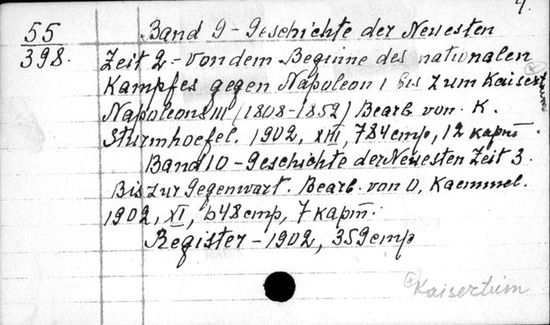 4.
55
398.
Band 9 - Geschichte der Neuesten
Zeit 2 - von dem Beginne des nationalen
Kampfes gegen Napoleon I bis zum Kaisert
Napoleons III (1808-1852) Bearb. von K.
Sturmhoefel. 1902, XIII, 784 стр, 12 карт.
Band 10 - Geschichte der Neuesten Zeit 3.
Bis zur Gegenwart. Bearb. von O. Kaemmel.
1902, XI, 648 стр, 7 карт.
Register - 1902, 359 стр
Kaisertum